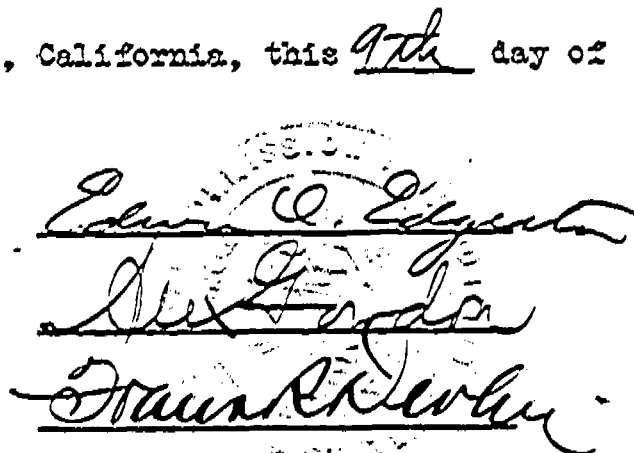 , California, this 9th day of
Edwin O. Edgerton
Alex Gordon
Frank R. Devlin